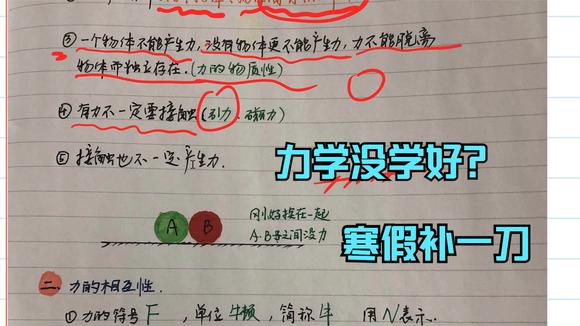 ③一个物体不能产生力,没有物体更不能产生力,力不能脱离
物体而独立存在.(力的物质性)
④有力不一定要接触(引力、磁力)
⑤接触也不一定产生力.
力学没学好?
A B
刚好挨在一起
A.B之间没力
寒假补一刀
二、力的相互性.
①力的符号F,单位牛顿,简称牛 用N表示..